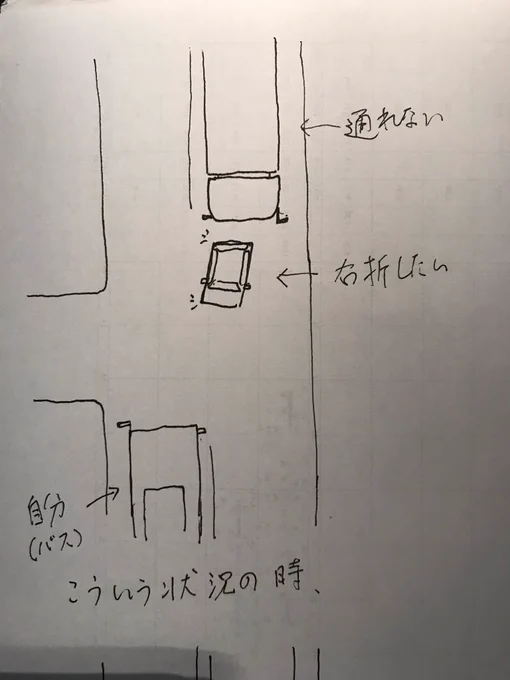 通れない
右折したい
自分
(バス)
こういう状況の時、